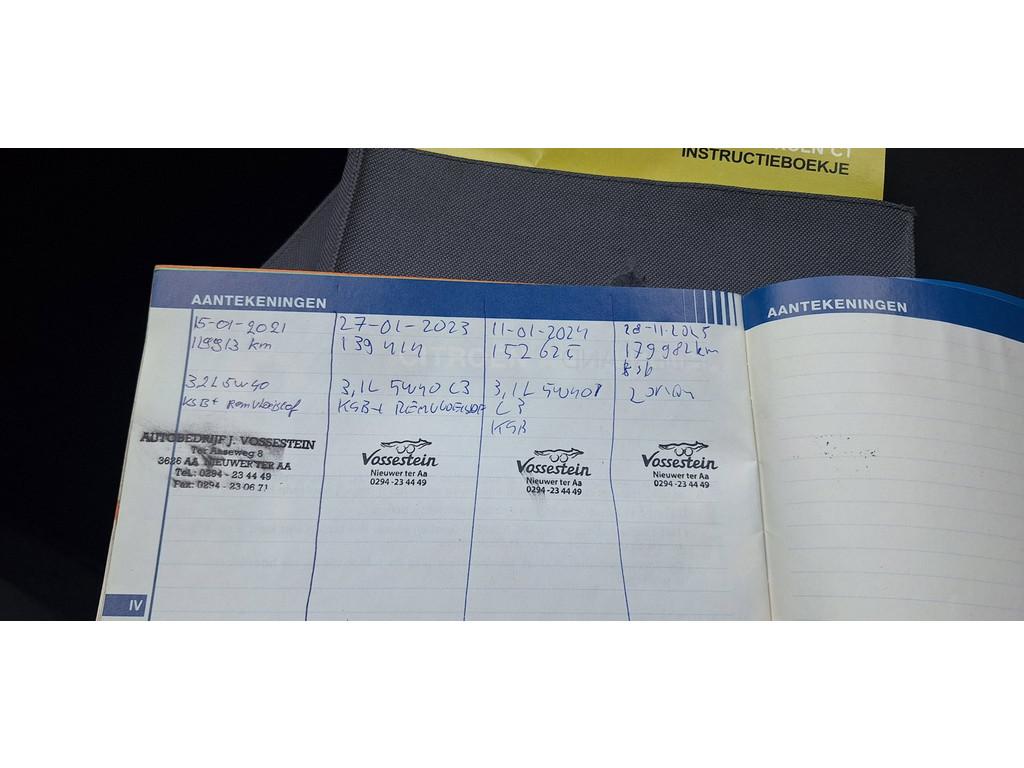 INSTRUCTIEBOEKJE
AANTEKENINGEN
15-01-2021
119913 km
3,2L 5W40
KSB + Remvloeistof
AUTOBEDRIJF J. VOSSESTEIN
Ter Aaseweg 8
3626 AA NIEUWER TER AA
Tel.: 0294 - 23 44 49
Fax: 0294 - 23 06 71
27-01-2023
139414
3,1L 5W40 C3
KSB + REMVLOEISTOF
Vossestein
Nieuwer ter Aa
0294 -23 44 49
11-01-2024
152625
3,1L 5W40
C3
KSB
Vossestein
Nieuwer ter Aa
0294 -23 44 49
28-11-2025
179982km
Vossestein
Nieuwer ter Aa
0294 -23 44 49
IV
AANTEKENINGEN